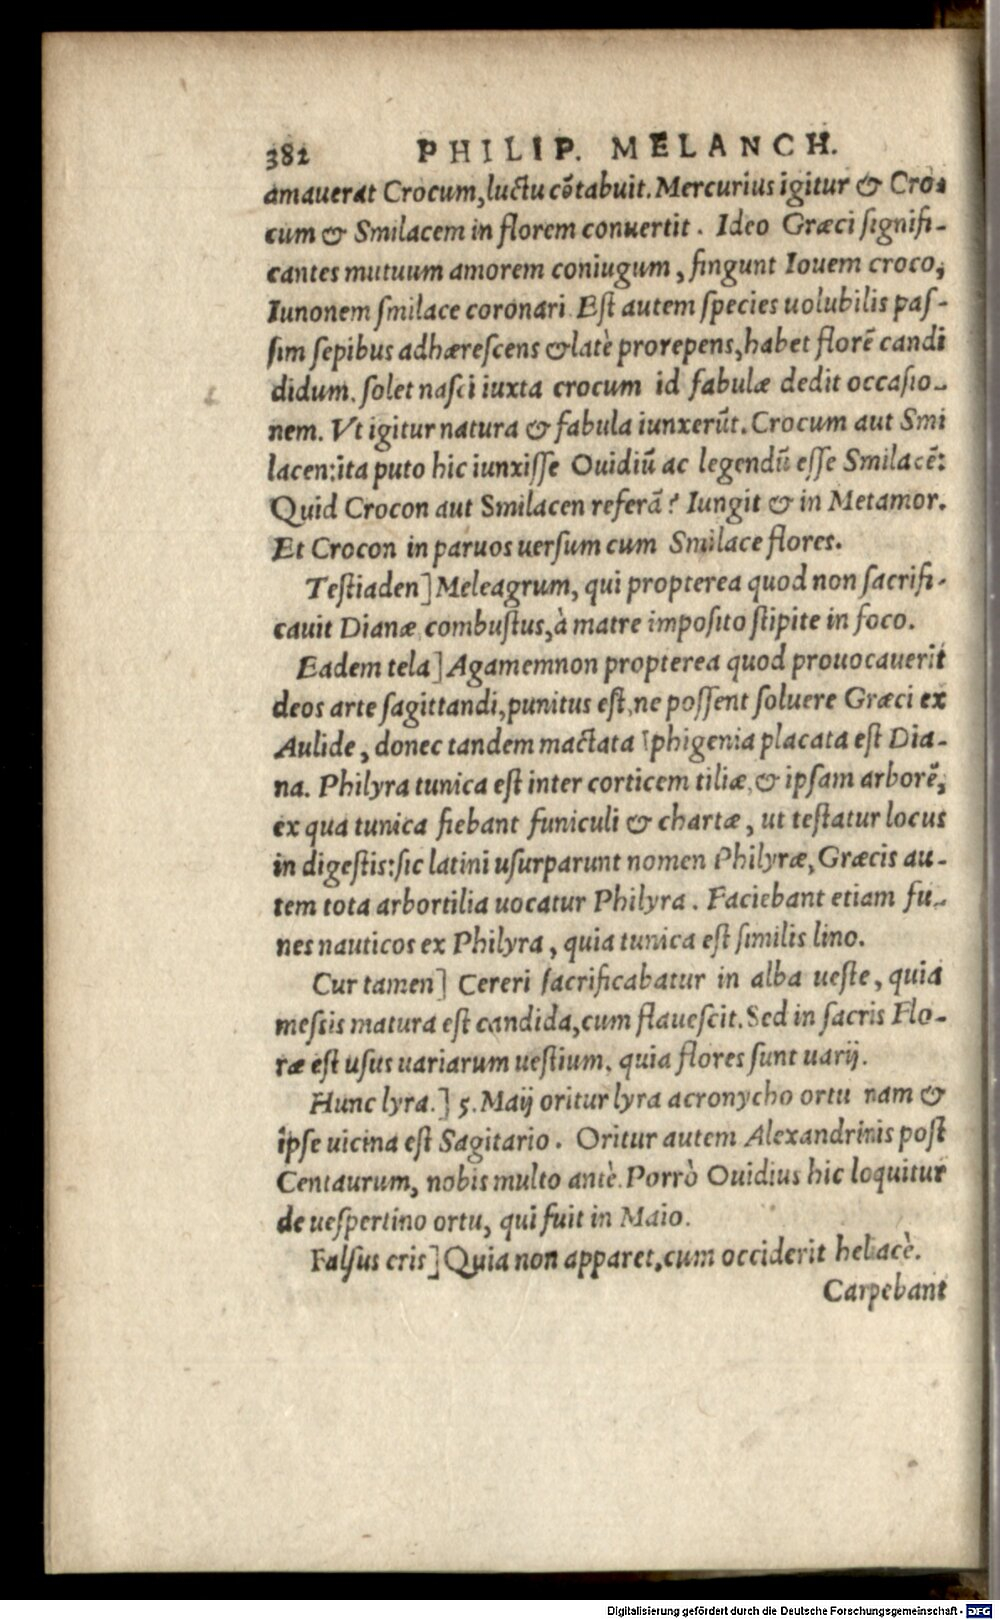 382 PHILIP. MELANCH.
amauerat Crocum, luctu cõtabuit. Mercurius igitur & Cro-
cum & Smilacem in florem conuertit. Ideo Græci signifi-
cantes mutuum amorem coniugum, fingunt Iouem croco,
Iunonem smilace coronari. Est autem species uolubilis pas-
sim sepibus adhærescens & latè prorepens, habet florẽ candi
didum. solet nasci iuxta crocum id fabulæ dedit occasio-
nem. Vt igitur natura & fabula iunxerũt. Crocum aut Smi
lacen: ita puto hic iunxisse Ouidiũ ac legendũ esse Smilacẽ:
Quid Crocon aut Smilacen referã? Iungit & in Metamor.
Et Crocon in paruos uersum cum Smilace flores.
Testiaden] Meleagrum, qui propterea quod non sacrifi-
cauit Dianæ combustus, à matre imposito stipite in foco.
Eadem tela] Agamemnon propterea quod prouocauerit
deos arte sagittandi, punitus est, ne possent soluere Græci ex
Aulide, donec tandem mactata Iphigenia placata est Dia-
na. Philyra tunica est inter corticem tiliæ, & ipsam arborẽ,
ex qua tunica fiebant funiculi & chartæ, ut testatur locus
in digestis: sic latini usurparunt nomen Philyræ, Græcis au-
tem tota arbor tilia uocatur Philyra. Faciebant etiam fu-
nes nauticos ex Philyra, quia tunica est similis lino.
Cur tamen] Cereri sacrificabatur in alba ueste, quia
messis matura est candida, cum flauescit. Sed in sacris Flo-
ræ est usus uariarum uestium, quia flores sunt uarij.
Hunc lyra.] 5. Maij oritur lyra acronycho ortu nam &
ipse uicina est Sagitario. Oritur autem Alexandrinis post
Centaurum, nobis multo antè. Porrò Ouidius hic loquitur
de uespertino ortu, qui fuit in Maio.
Falsus eris] Quia non apparet, cum occiderit heliacè.
Carpebant
Digitalisierung gefördert durch die Deutsche Forschungsgemeinschaft - DFG